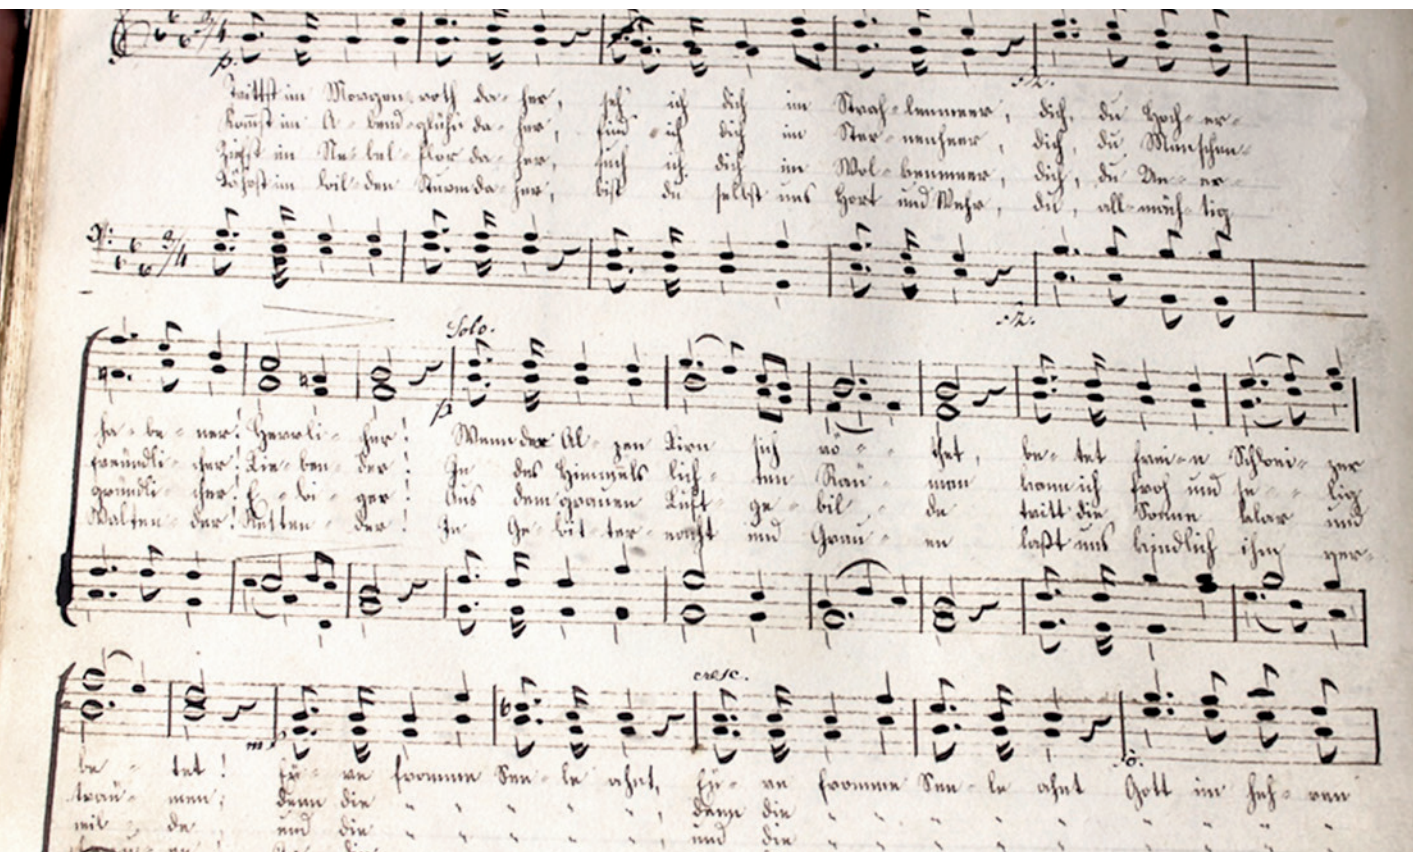 p.
Trittst im Morgenroth da- her, seh' ich dich im Strah- lenmeer, dich, du Hoch- er-
Kom̄st im A- bend- glühn da- her, find' ich dich im Ster- nenheer, dich, du Menschen-
Ziehst im Ne- bel- flor da- her, such' ich dich im Wol- kenmeer, dich, du Un- er-
im wil- den Sturm da- her, bist du selbst uns Hort und Wehr, du, all- mäch- tig
Solo.
p
ha- be- ner! Herrli- cher! Wenn der Al- pen Firn sich rö- thet, be- tet frei- e Schwei- zer
freundli- cher! Lie- ben- der! In des Himmels lich- ten Räu- men kann ich froh und se- lig
gründli- cher! E- wi- ger! Aus dem grauen Luft- ge- bil- de tritt die Sonne klar und
Walten- der! Retten- der! In Ge- wit- ter- nacht und Grau- en laßt uns kindlich ihm ver-
cresc.
be- tet! Eu- re fromme See- le ahnt, Eu- re fromme See- le ahnt Gott im heh- ren
träu- men; denn die " " " " , denn die " " " " " " "
mil- de, und die " " " " , und die " " " " " " "